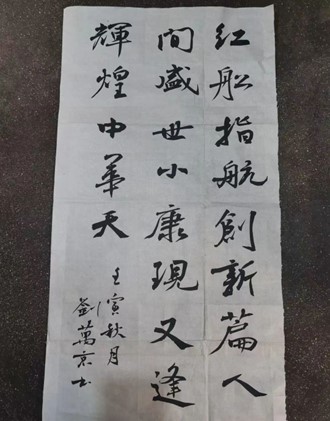 红船指航創新篇人
间盛世小康現又逢
輝煌中華天
壬寅秋月
劉萬京书